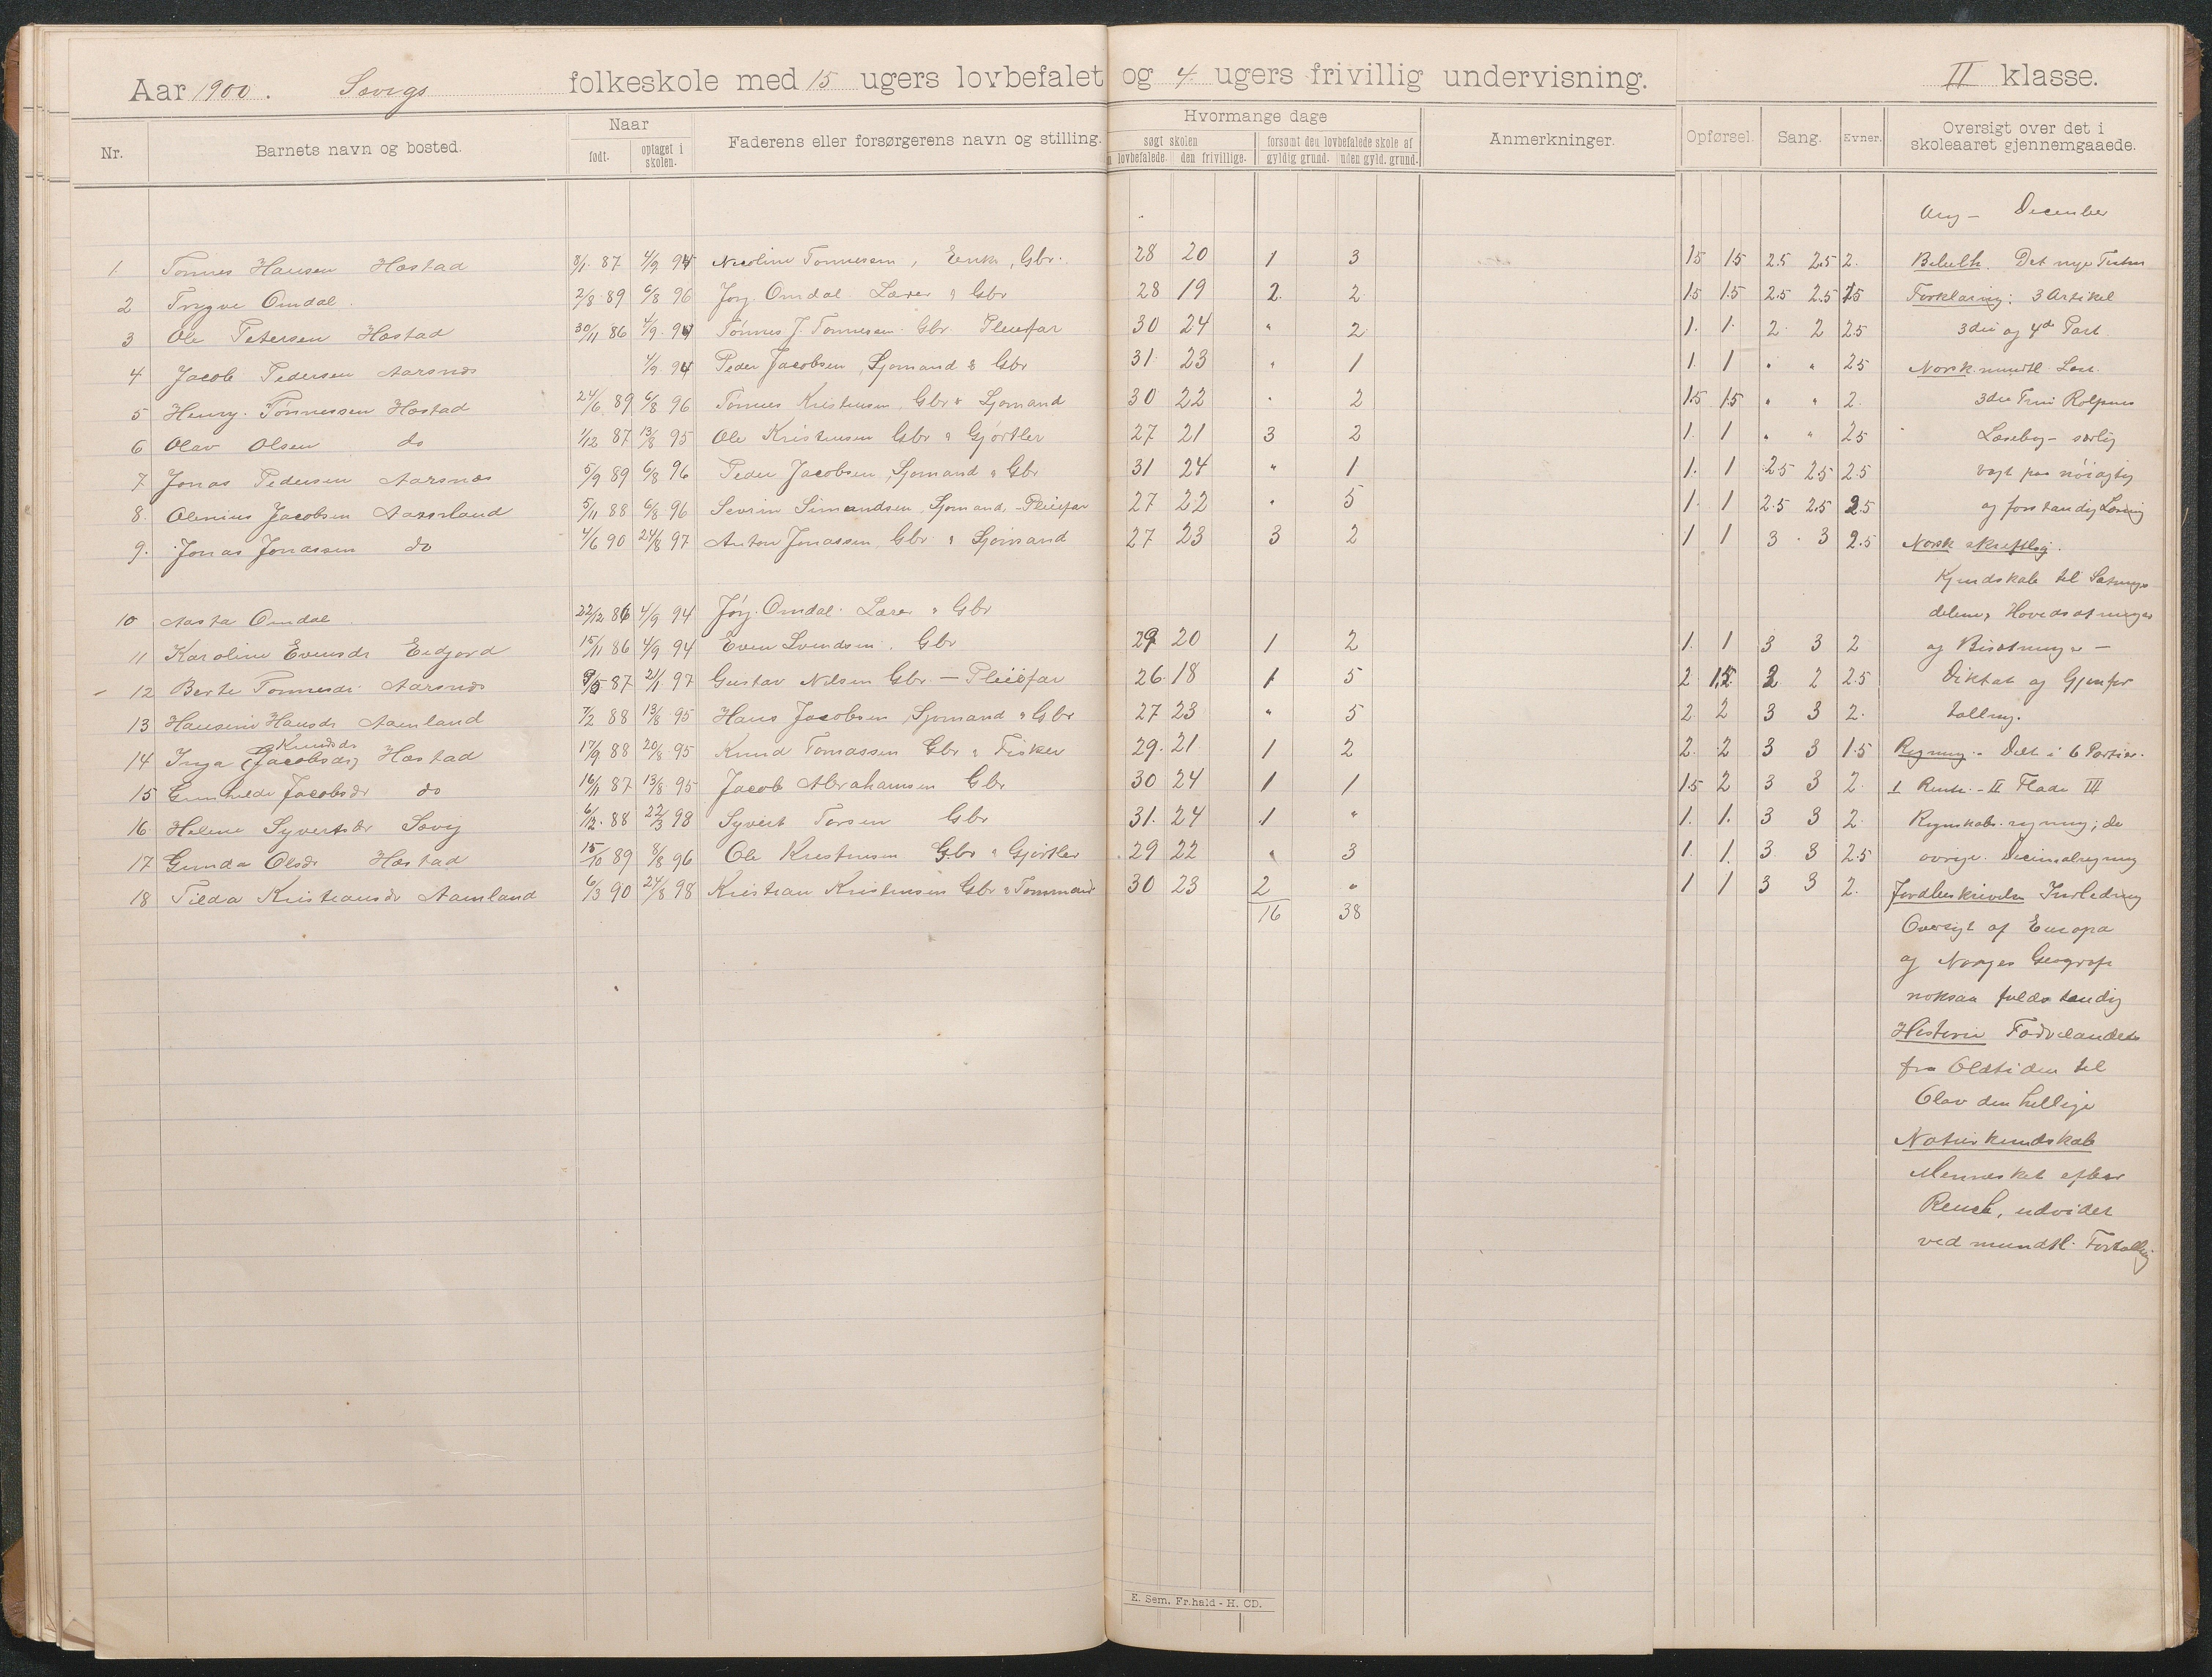 Aar 1900. Sævigs folkeskole med 15 ugers lovbefalet og 4 ugers frivillig undervisning. II klasse.
Nr. Barnets navn og bosted. Naar født. optaget i skolen. Faderens eller forsørgerens navn og stilling. Hvormange dage søgt skolen n lovbefalede. den frivillige. forsømt den lovbefalede skole af gyldig grund. uden gyld. grund. Anmerkninger. Opførsel. Sang. Evner. Oversigt over det i skoleaaret gjennemgaaede.
Aug - December
1 Tønnes Hansen Hæstad 8/1 87 4/9 94 Nicoline Tønnesen, Enke, Gbr. 28 20 1 3 1.5 1.5 2.5 2.5 2. Bibelh. Det nye Testm
2 Trygve Omdal. 2/8 89 6/8 96 Jørg. Omdal. Lærer & Gbr 28 19 2. 2 1.5 1.5 2.5 2.5 1.5 Forklaring: 3 Artikel
3 Ole Petersen Hæstad 30/11 86 4/9 94 Tønnes J. Tønnesen. Gbr. Pleiefar 30 24 " 2 1. 1. 2. 2 2.5 3die og 4de Part.
4 Jacob Pedersen Aarsnes 4/9 94 Peder Jacobsen, Sjømand & Gbr 31. 23 " 1 1. 1 " " 2.5 Norsk. mundtl. Læs.
5 Henry. Tønnessen Hæstad 24/6 89 6/8 96 Tønnes Kristensen, Gbr & Sjømand 30 22 " 2 1.5 1.5 " " 2. 3die Trin Rolfsens
6 Olav Olsen do 1/12 87 13/8 95 Ole Kristensen Gbr & Gjørtler 27 21 3 2 1. 1 " " 2.5 Læsebog - særlig
7. Jonas Pedersen Aarsnes 5/9 89 6/8 96 Peder Jacobsen, Sjømand & Gbr 31 24 " 1 1. 1 2.5 2.5 2.5 vegt paa nøiagtig
8. Olenius Jacobsen Aamland 5/11 88 6/8 96 Sevrin Simundsen, Sjømand, - Pleiefar 27 22 " 5 1. 1 2.5 2.5 2.5 og forstandig Læsning
9. Jonas Jonassen do 4/6 90 24/8 97 Anton Jonassen, Gbr & Sjømand 27 23 3 2 1 1 3 3 2.5 Norsk skriftlig.
Kjendskab til Sætnings
10 Aasta Omdal. 22/12 86 4/9 94 Jørg. Omdal. Lærer & Gbr delene, Hovedsætninger
11 Karoline Evensdr Eidjord 15/11 86 4/9 94 Even Svendsen. Gbr 29 20 1 2 1. 1 3 3 2 og Bisætninger -
- 12 Berte Tønnesdr. Aarsnes 9/5 87 2/1 97 Gustav Nilsen Gbr. - Pleiefar 26 18 1 5 2 1.5 2 2 2.5 Diktat og Gjenfor
13 Hansine Hansdr Aamland 7/2 88 13/8 95 Hans Jacobsen, Sjømand & Gbr 27 23 " 5 2. 2 3 3 2. tælling.
Knudsdr
14 Inga (Jacobsdr) Hæstad 17/9 88 20/8 95 Knud Tomassen Gbr & Fisker 29. 21 1 2 2. 2 3 3 1.5 Regning. Delt i 6 Partier.
15 Gunhilde Jacobsdr do 16/1 87 13/8 95 Jacob Abrahamsen Gbr 30 24 1 1 1.5 2 3 3 2. I Rente. - II Flade III
16. Helene Syvertsdr Sævig 6/12. 88 22/3 98 Syvert Torsen Gbr 31. 24 1 " 1. 1. 3 3 2. Regnskabs.regning; de
17 Gunda Olsdr Hæstad 15/10 89 8/8 96 Ole Kristensen Gbr & Gjørtler 29 22 " 3 1. 1. 3 3 2.5 øvrige. Decimalregning
18 Tilda Kristiansdr Aamland 6/3 90 24/8 98 Kristian Kristensen Gbr & Tømmand 30 23 2 " 1 1 3 3 2. Jordbeskrivelse Indledning
16 38
Oversigt af Europa
og Norges Geografi
noksaa fuldstændig
Historie Fædrelandets
fra Oldtiden til
Olav den hellige
Naturkundskab
Mennesket efter
Reusch, udvidet
ved mundtl. Fortælling
E. Sem. Fr.hald - H. CD.